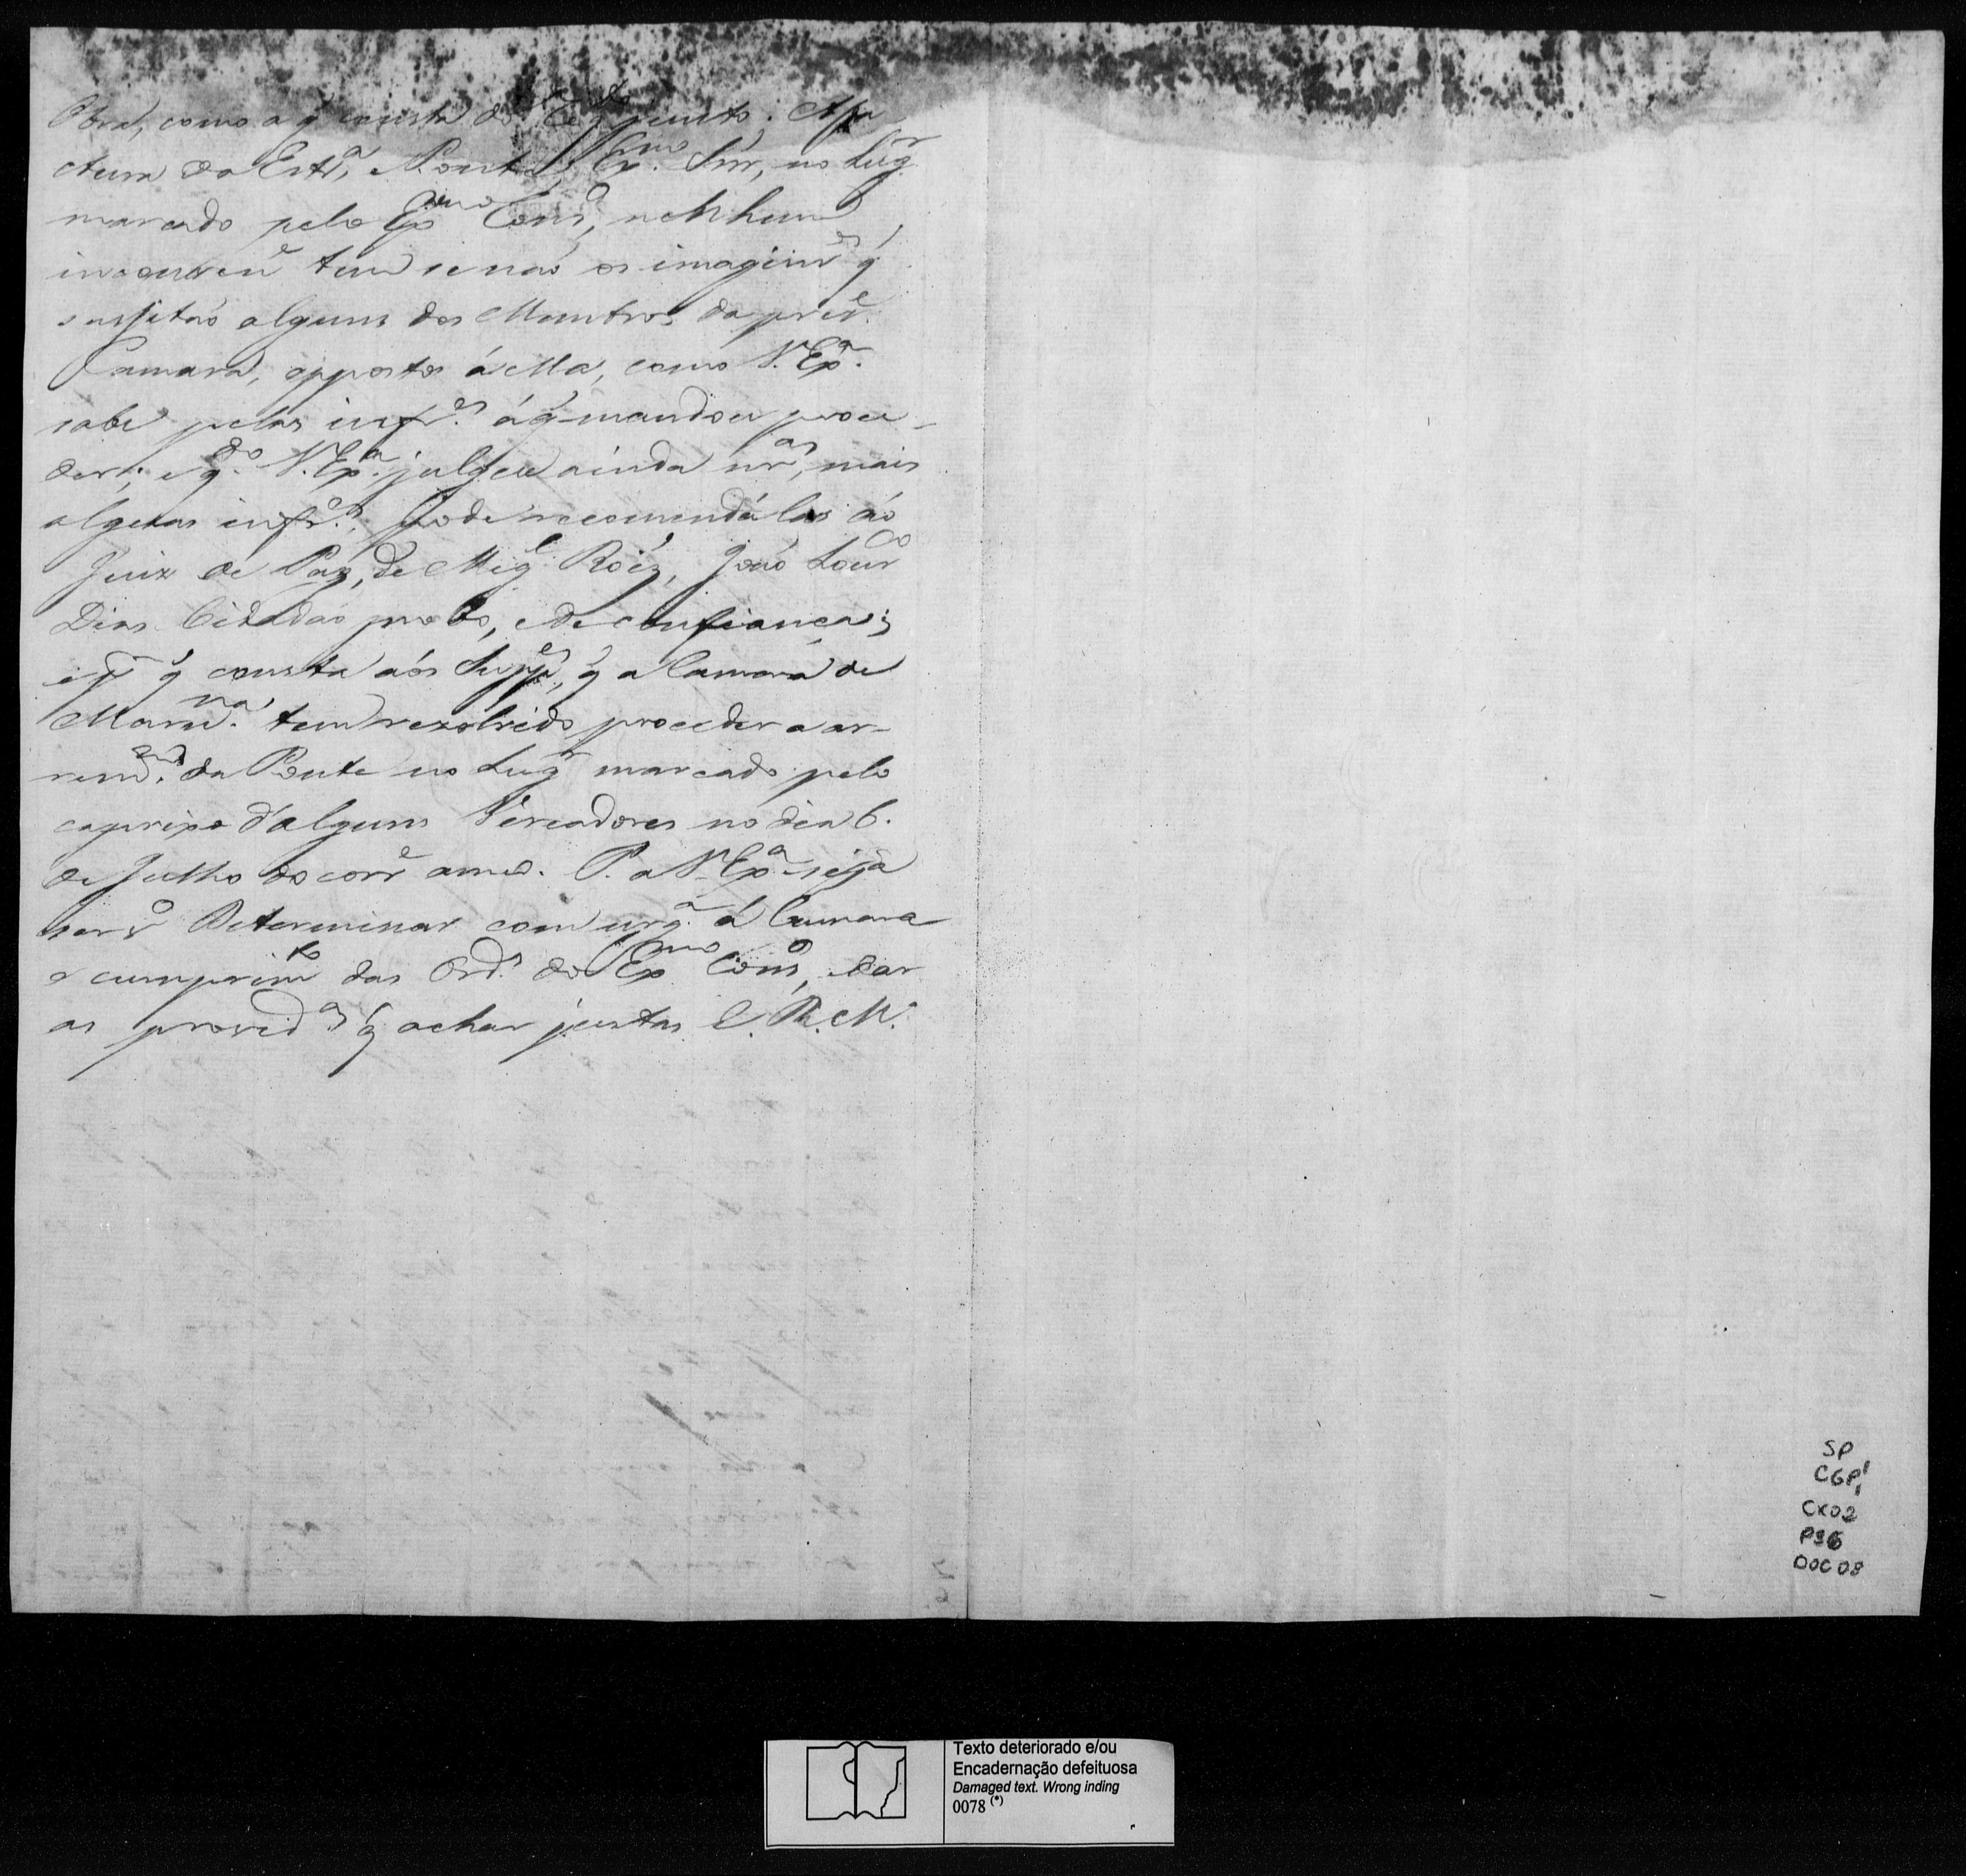 Obra, como o q̃ consta do junto. A fa
ctura da Estr.ª, e Ponte, Ex.mo Snr, no Lug.r
marcado pelo Ex.mo Cons.º, nehhum
inconven.e tem senaõ os imagin.es q̃
sussitaõ alguns dos Membros da prez.e
Camara, oppostos á ella, como V. Ex.ª
sabe pelas inf.es á q̃ mandou proce-
der; e q.do V. Ex.ª julgue ainda nr.as, mais
algũas inf.es, pode recomendálas áo
Juiz de Paz, de Mig.l Roiz, Joaõ Lour.co
Dias Cidadaõ probo, e de confiança;
q̃ consta aós Supp.es, q̃ a Camara de
Mar.na tem rezolvido proceder a ar-
rem.am da Ponte no Lug.r marcado pelo
caprixo d'alguns Vereadores no dia 6.
de Julho do corr.e anno. P. a V. Ex.ª seja
serv.º Determinar com urg.ª á Camara
o cumprim.to das Ord.s do Ex.mo Cons.º, e dar
as provid.as q̃ achar justas
E. R. M.
SP
CGP1
CX02
P96
DOC 08
Texto deteriorado e/ou
Encadernação defeituosa
Damaged text. Wrong inding
0078 (*)